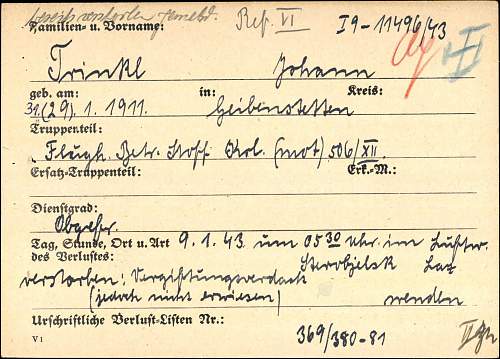 Ref. VI I9-11496/43
Familien- u. Vorname:
Trinkl Johann
geb. am: in: Kreis:
31.(29).1.1911. Geibenstetten
Truppenteil:
Flugh. Betr. Stoff Kol. (mot) 506/XII
Ersatz-Truppenteil: Erk.-M.:
Dienstgrad:
Obgefr.
Tag, Stunde, Ort u. Art 9.1.43 um 05³⁰ Uhr im
des Verlustes: Starobjelsk Laz
verstorben: Vergiftungsverdacht
(jedoch nicht erwiesen) wenden
Urschriftliche Verlust-Listen Nr.:
V1 369/380-81